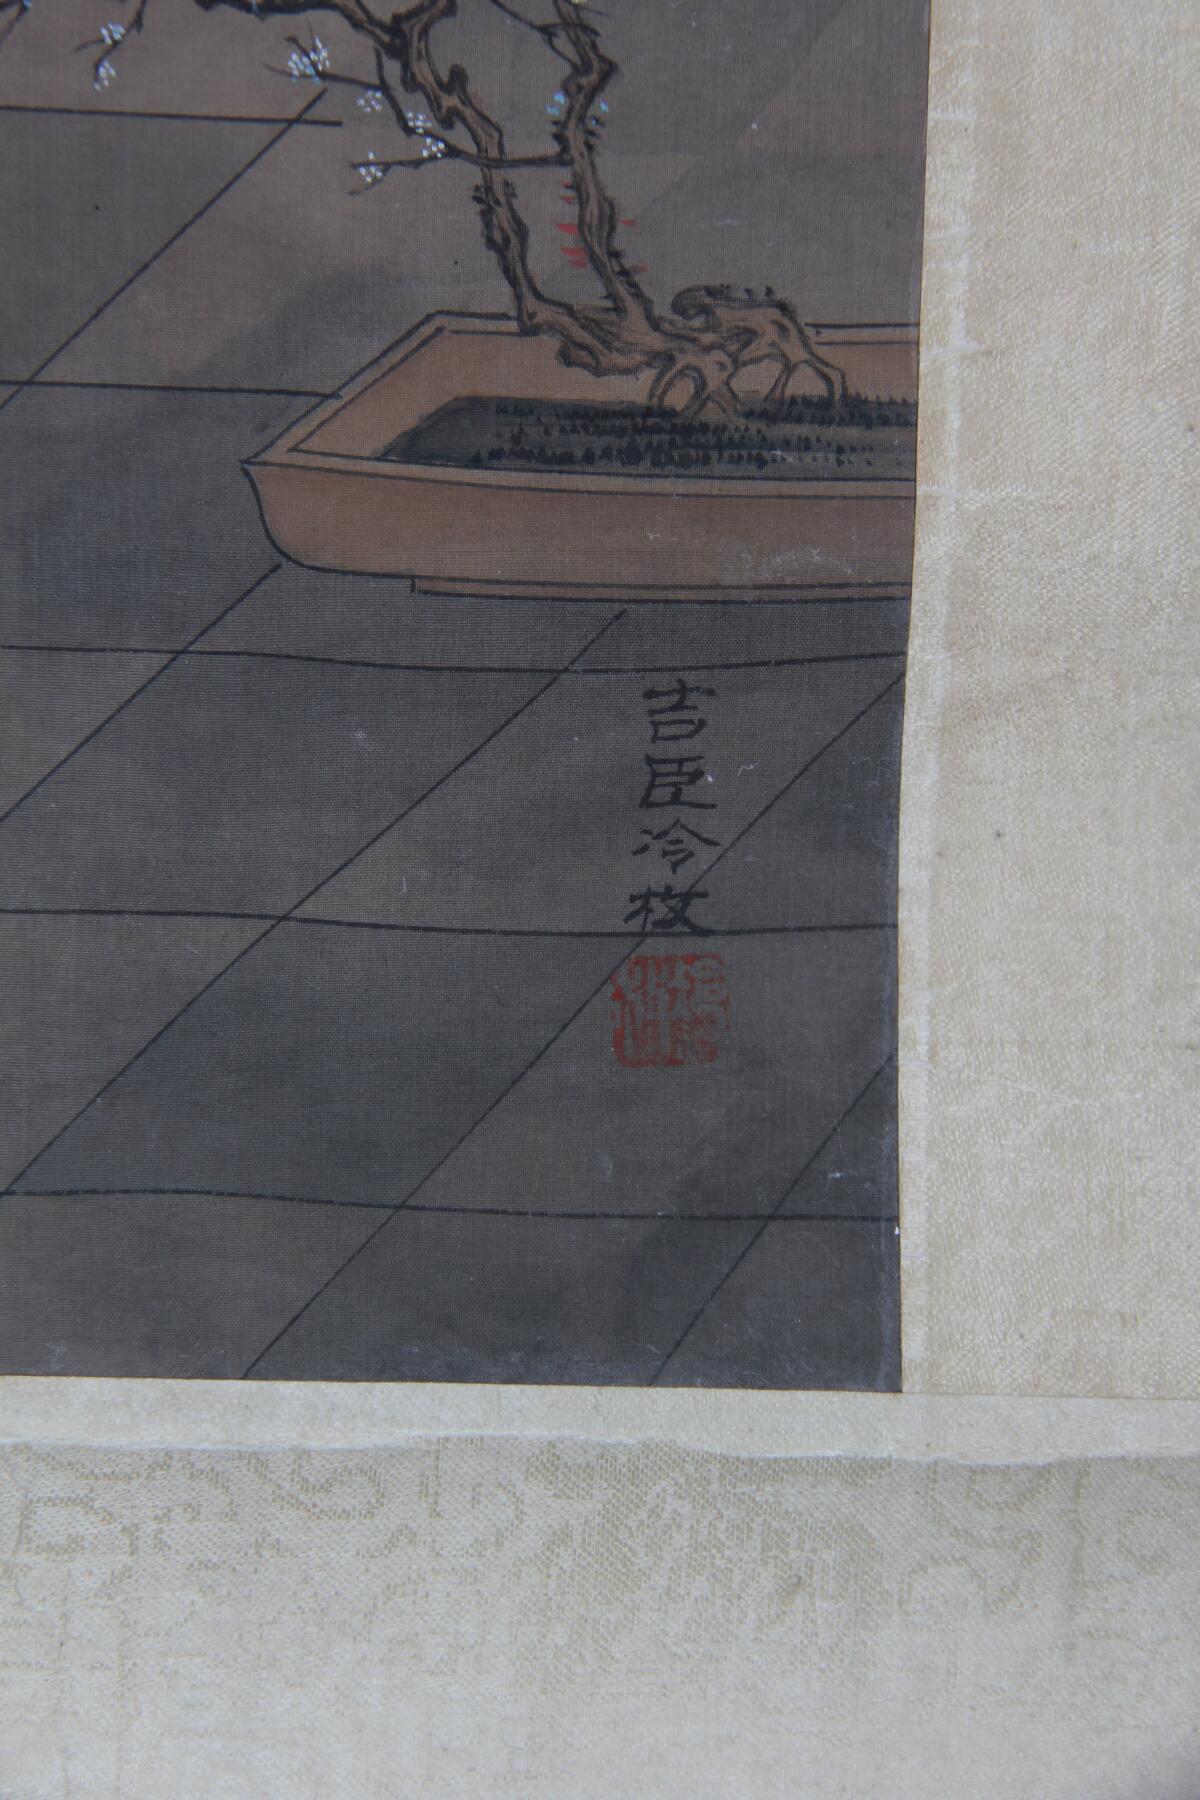 吉臣冷枚